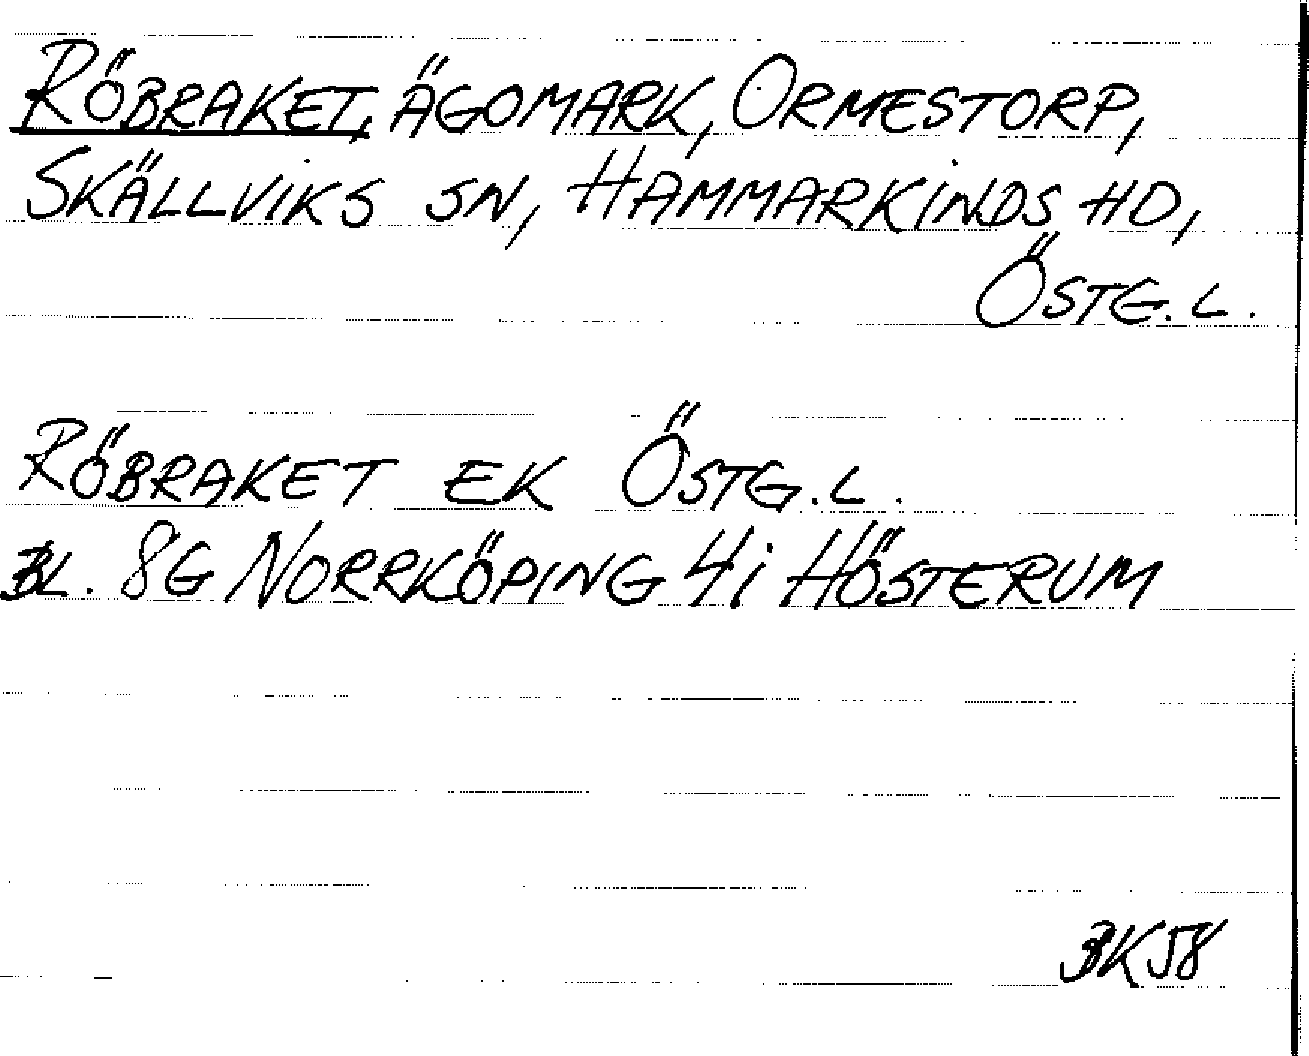 RÖBRAKET, ÄGOMARK, ORMESTORP,
SKÄLLVIKS SN, HAMMARKINDS HD,
ÖSTG. L.
RÖBRAKET EK ÖSTG. L.
BL. 8G NORRKÖPING 4i HÖSTERUM
BK58